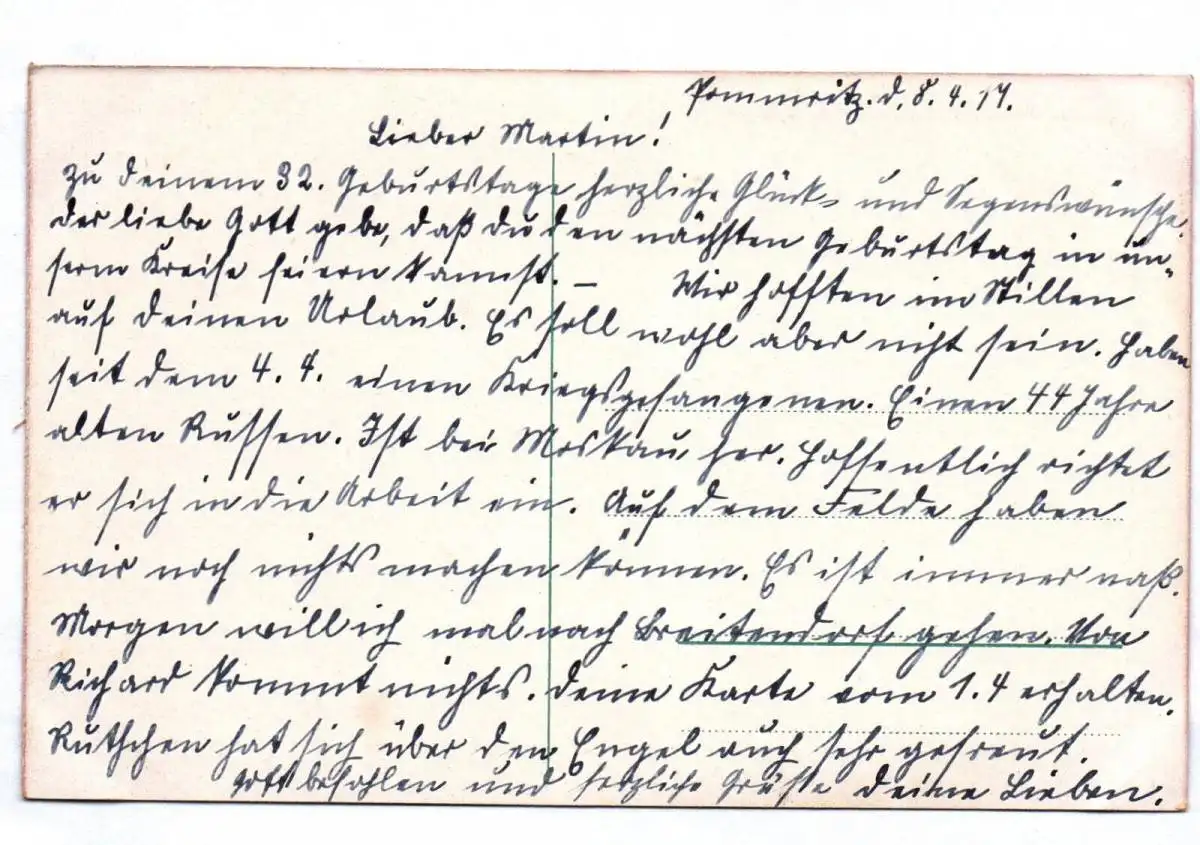 Pommritz. d. 8. 4. 17.
Lieber Martin!
Zu deinem 32. Geburtstage herzliche Glück- und Segenswünsche.
Der liebe Gott gebe, daß du den nächsten Geburtstag in un-
serm Kreise feiern kannst. – Wir hofften im Stillen
auf deinen Urlaub. Es soll wohl aber nicht sein. Haben
seit dem 4. 4. einen Kriegsgefangenen. Einen 44 Jahre
alten Russen. Ist bei Moskau her. Hoffentlich richtet
er sich in die Arbeit ein. Auf dem Felde haben
wir noch nichts machen können. Es ist immer naß.
Morgen will ich mal nach Breitendorf gehen. Von
Richard kommt nichts. Deine Karte vom 1. 4 erhalten.
Ruthchen hat sich über den Engel auch sehr gefreut.
Gott befohlen und herzliche Grüße deine Lieben.